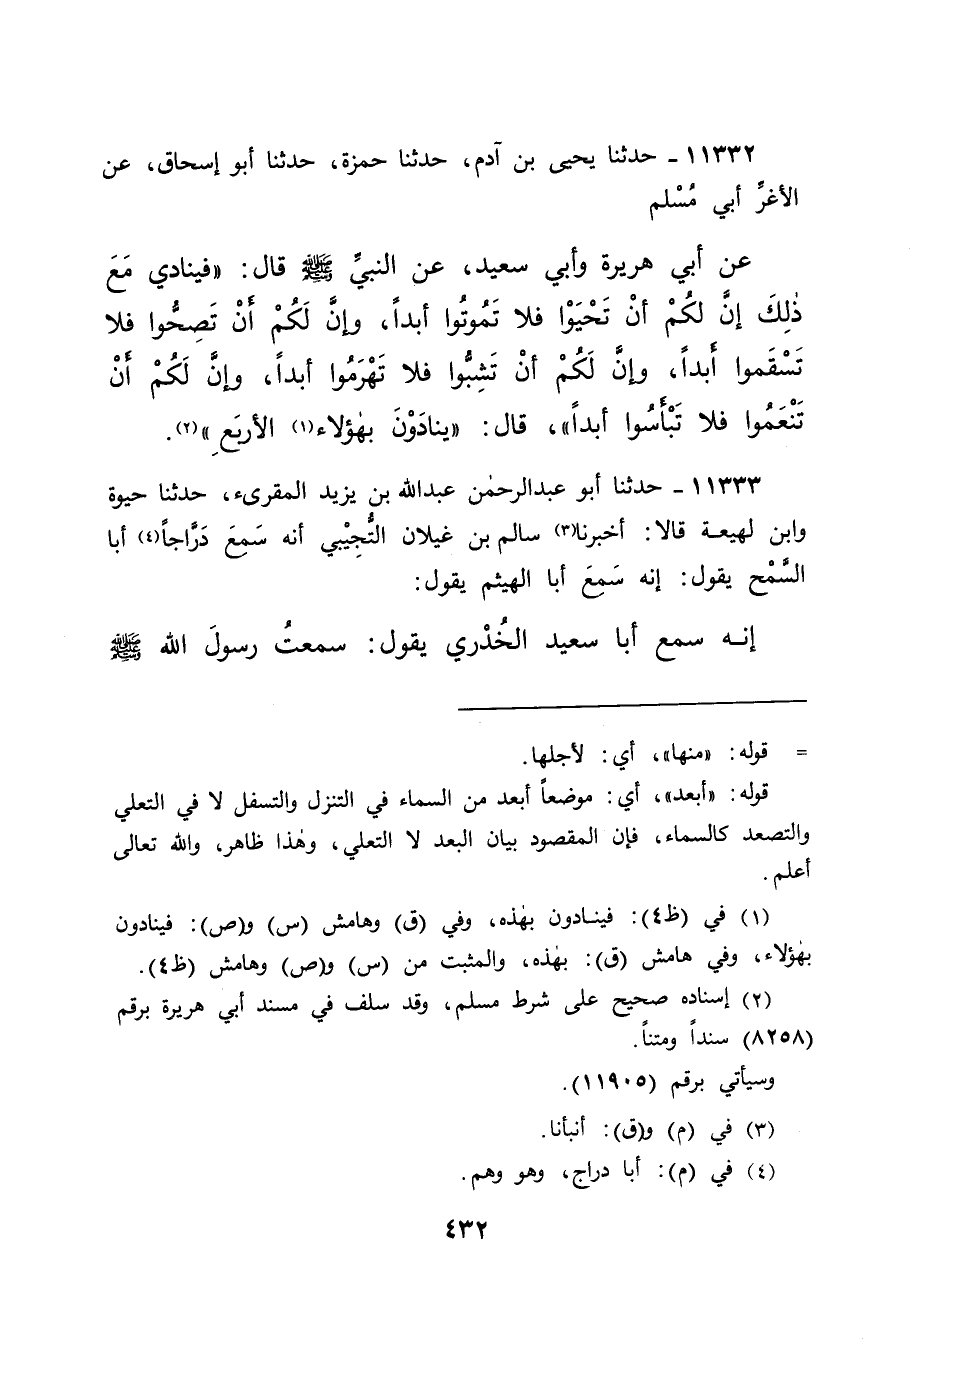 ١١٣٣٢ ـ حدثنا يحيى بن آدم، حدثنا حمزة، حدثنا أبو إسحاق، عن
الأغرِّ أبي مُسْلم
عن أبي هريرة وأبي سعيد، عن النبيِّ ﷺ قال: «فينادي مَعَ
ذٰلِكَ إنَّ لكُمْ أنْ تَحْيَوْا فلا تَمُوتُوا أبداً، وإنَّ لَكُمْ أَنْ تَصِحُّوا فلا
تَسْقَموا أَبداً، وإنَّ لَكُمْ أنْ تَشِبُّوا فلا تَهْرَمُوا أبداً، وإنَّ لَكُمْ أَنْ
تَنْعَمُوا فلا تَبْأَسُوا أبداً»، قال: «ينادَوْنَ بهٰؤلاء(١) الأربَعِ»(٢).
١١٣٣٣ ـ حدثنا أبو عبدالرحمٰن عبدالله بن يزيد المقرىء، حدثنا حيوة
وابن لهيعـة قالا: أخبرنا(٣) سالم بن غيلان التُّجِيْبي أنه سَمِعَ دَرَّاجاً(٤) أبا
السَّمْح يقول: إنه سَمِعَ أبا الهيثم يقول:
إنـه سمع أبا سعيد الخُدْري يقول: سمعتُ رسولَ الله ﷺ
= قوله: «منها»، أي: لأجلها.
قوله: «أبعد»، أي: موضعاً أبعد من السماء في التنزل والتسفل لا في التعلي
والتصعد كالسماء، فإن المقصود بيان البعد لا التعلي، وهٰذا ظاهر، والله تعالى
أعلم.
(١) في (ظ٤): فينـادون بهٰذه، وفي (ق) وهامش (س) و(ص): فينادون
بهٰؤلاء، وفي هامش (ق): بهٰذه، والمثبت من (س) و(ص) وهامش (ظ٤).
(٢) إسناده صحيح على شرط مسلم، وقد سلف في مسند أبي هريرة برقم
(٨٢٥٨) سنداً ومتناً.
وسيأتي برقم (١١٩٠٥).
(٣) في (م) و(ق): أنبأنا.
(٤) في (م): أبا دراج، وهو وهم.
٤٣٢